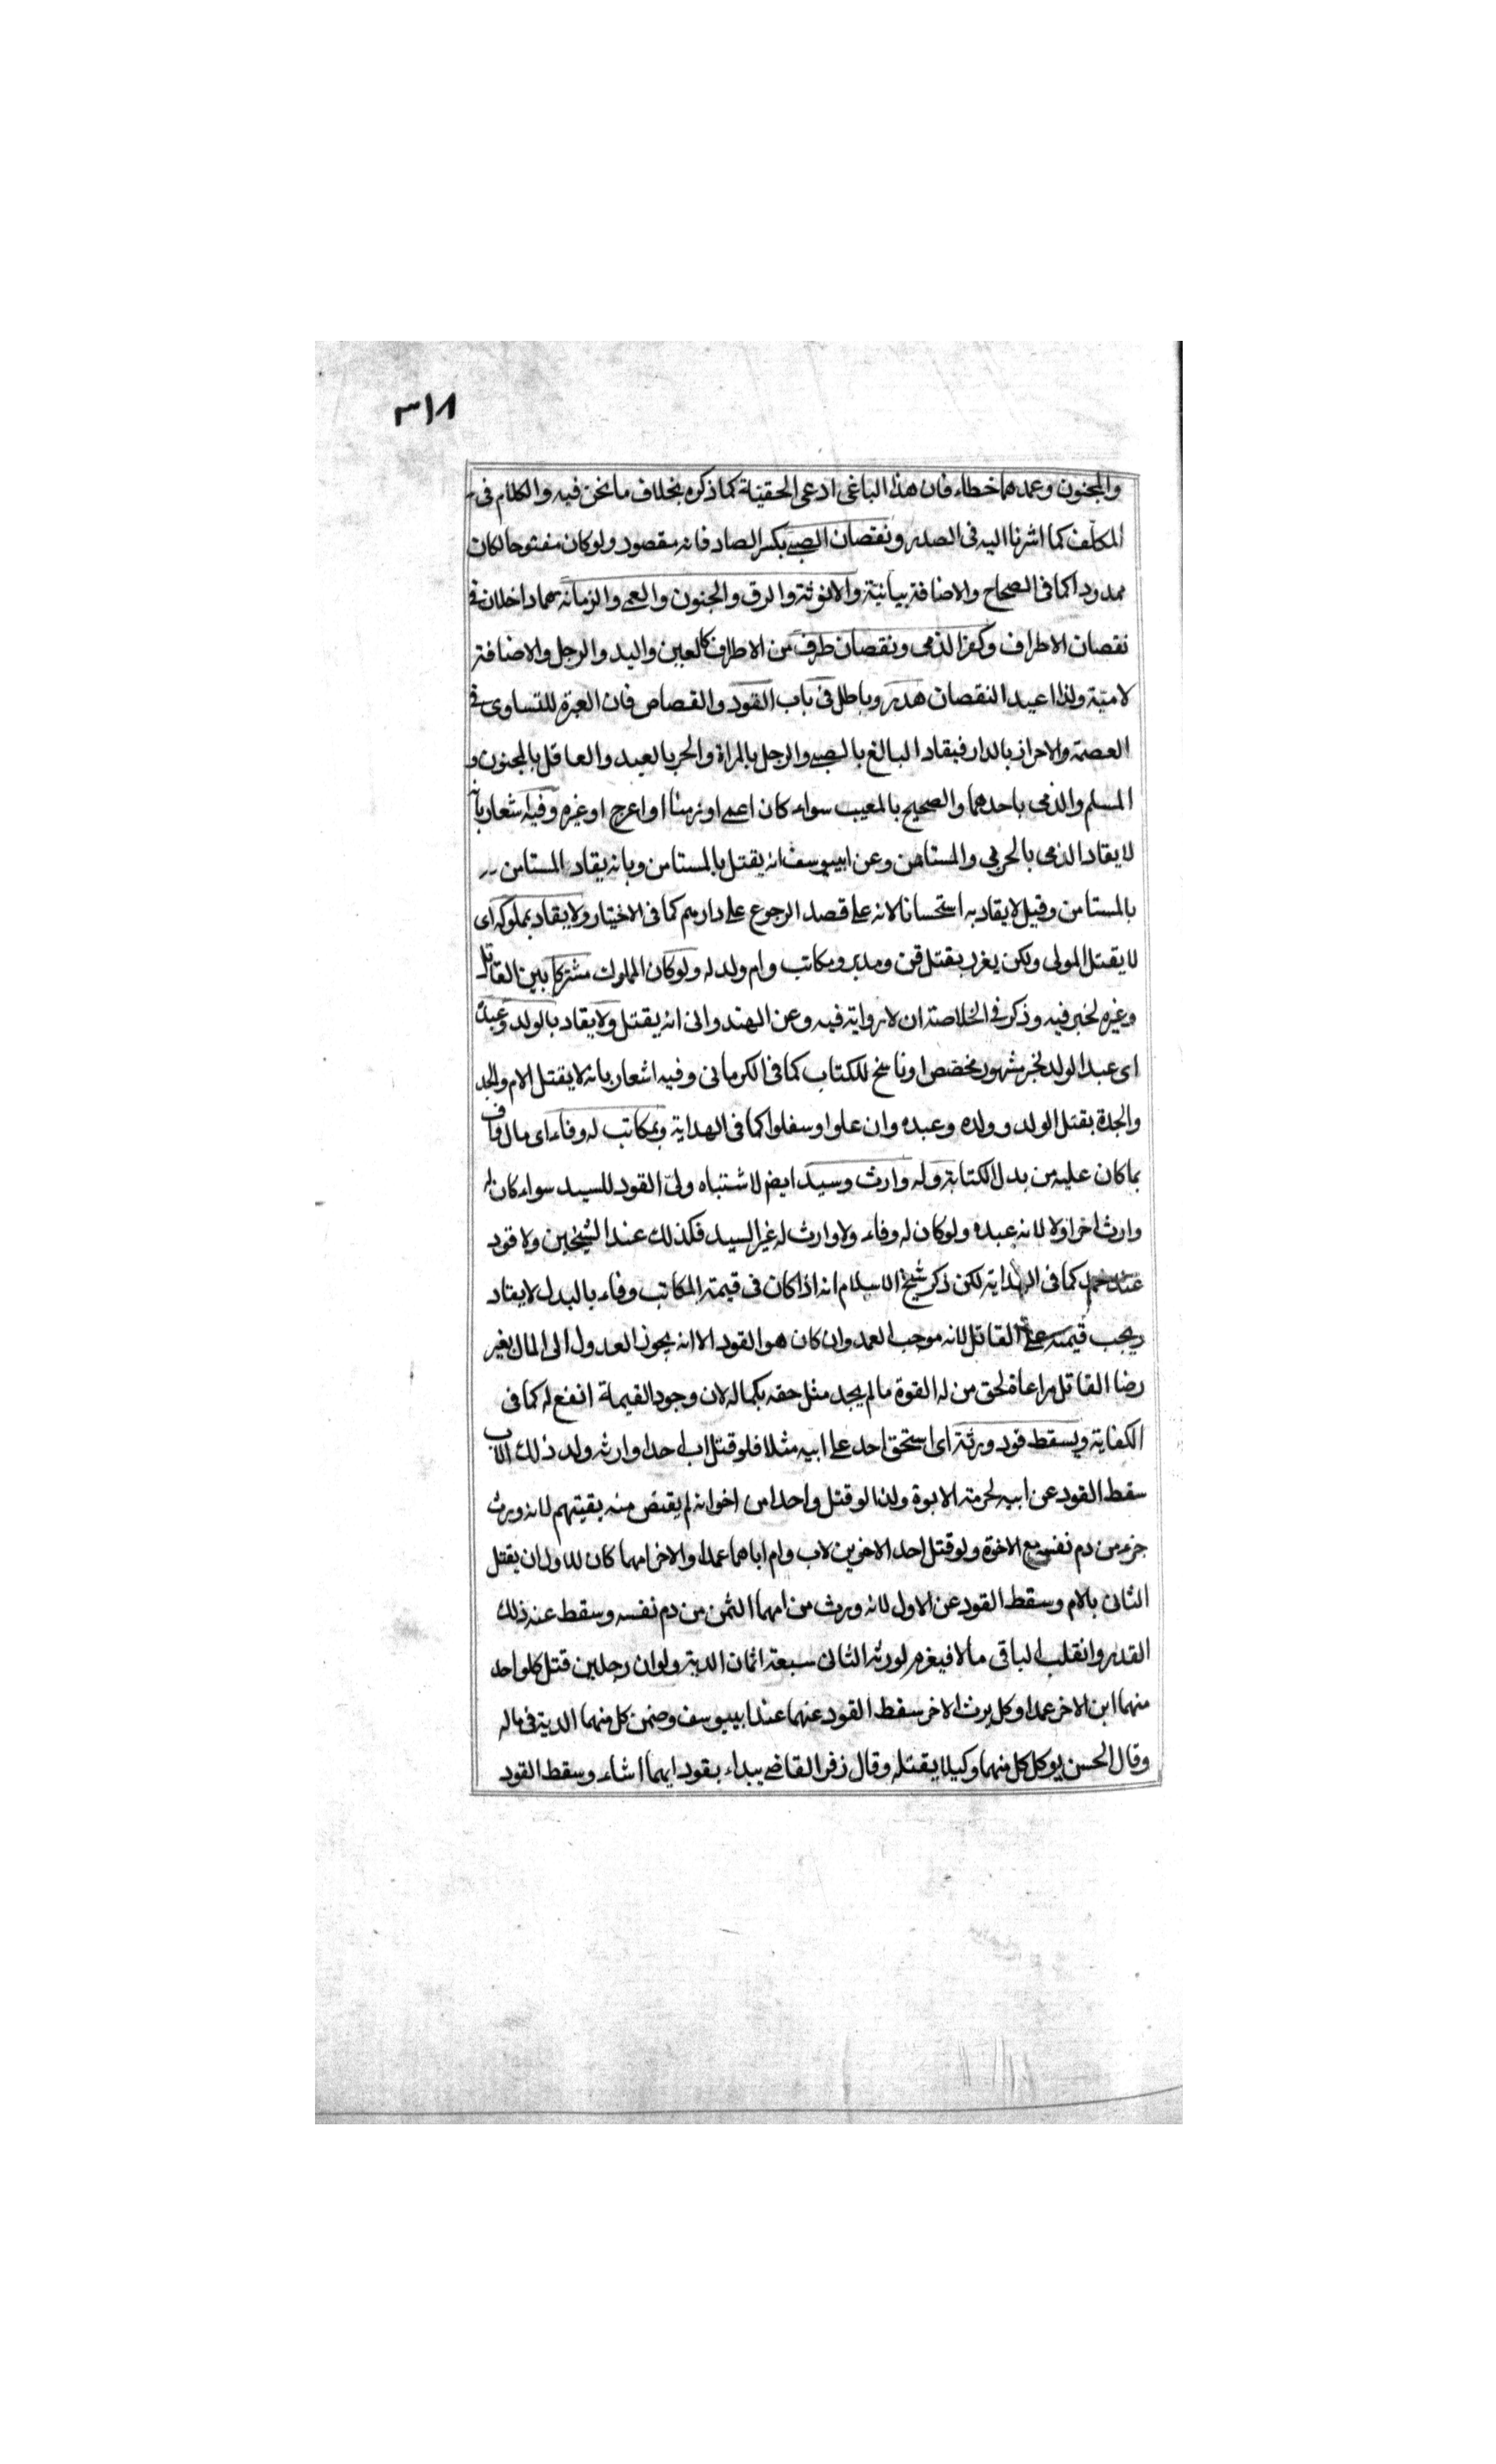 ٣١٨
والمجنون وعمدهما خطاء فان هذا الباغى ادعى الحقيّة كما ذكره بخلاف ما نحن فيه والكلام فى
المكلّف كما اشرنا اليه فى الصدر ونقصان الصبى بكسر الصاد فانه مقصود ولو كان مفتوحا لكان
ممدودا كما فى الصحاح والاضافة بيانيّة والانوثة والرق والجنون والعمى والزمانة هما داخلان فى
نقصان الاطراف وكفر الذمى ونقصان طرف من الاطراف كالعين واليد والرجل والاضافة
لاميّة ولذا اعيد النقصان هدر وباطل فى باب القود والقصاص فان العبرة للتساوى فى
العصمة والاحراز بالدار فيقاد البالغ بالصبى والرجل بالمراة والحر بالعبد والعاقل بالمجنون و
المسلم والذمى باحدهما والصحيح بالمعيب سواء كان اعمى او زمنا او اعرج او غيره وفيه اشعار بانه
لا يقاد الذمى بالحربى والمستامن وعن ابيوسف انه يقتل بالمستامن وبانه يقاد المستامن
بالمستامن وقيل لا يقاد به استحسانا لانه على قصد الرجوع على دارهم كما فى الاختيار ولا يقاد بمملوكه اى
لا يقتل المولى ولكن يعزر بقتل قن ومدبر ومكاتب وام ولد له ولو كان المملوك مشتركا بين القاتل
وغيره لخبر فيه وذكر فى الخلاصة ان لا رواية فيه وعن الهندوانى انه يقتل ولا يقاد بالولد وعبده
اى عبد الولد لخبر مشهور مخصص او ناسخ للكتاب كما فى الكرمانى وفيه اشعار بانه لا يقتل الام والجد
والجدة بقتل الولد وولده وعبده وان علوا او سفلوا كما فى الهداية وبمكاتب له وفاء اى مال واف
بما كان عليه من بدل الكتابة وله وارث وسيد ايضم لاشتباه ولىّ القود للسيد سواء كان له
وارث اخر اولا لانه عبده ولو كان له وفاء ولا وارث له غير السيد فكذلك عند الشيخين ولا قود
عند محمد كما فى الهداية لكن ذكر شيخ الاسلام انه اذا كان فى قيمة المكاتب وفاء بالبدل لا يقاد
ويجب قيمته على القاتل لانه موجب العمد وان كان هو القود الا انه يجوز العدول الى المال بغير
رضا القاتل مراعاة لحق من له القوة ما لم يجد مثل حقه بكماله لان وجود القيمة انفع له كما فى
الكفاية ويسقط قود ورثة اى استحق احد على ابيه مثلا فلو قتل اب احدا وارثه ولد ذلك الاب
سقط القود عن ابيه لحرمة الابوة ولذا لو قتل واحدا من اخوانه لم يقتص منه بقيتهم لانه ورث
جزء من دم نفسه مع الاخوة ولو قتل احد الاخوين لاب وام اباهما عمدا والاخر امهما كان للاول ان يقتل
الثانى بالام وسقط القود عن الاول لانه ورث من امهما الثمن من دم نفسه وسقط عنه ذلك
القدر وانقلب الباقى مالا فيغرم لورثة الثانى سبعة اثمان الدية ولو ان رجلين قتل كلواحد
منهما ابن الاخر عمدا وكل يرث الاخر سقط القود عنهما عند ابييوسف وضمن كل منهما الدية فى ماله
وقال الحسن يوكل كل منهما وكيلا يقتله وقال زفر القاضى يبداء بقود ايهما شاء وسقط القود